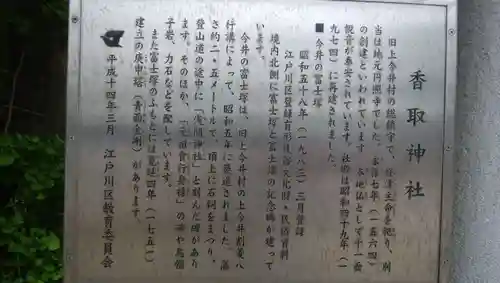 香取神社
旧上今井村の総鎮守で、経津主命を祀り、別
当は地元円照寺でした。永禄七年（一五六四）
の創建といわれています。本地仏として十一面
観音が奉安されています。社殿は昭和四十九年（一
九七四）に再建されました。
■今井の富士塚
昭和五十八年（一九八三）三月登録
江戸川区登録有形民俗文化財・民俗資料
境内北側に富士塚と富士講の記念碑が建って
います。
今井の富士塚は、旧上今井村の上今井割菱八
行講によって、昭和五年に築造されました。高
さ約二・五メートルで、頂上に石祠をまつり、
登山道の途中に「浅間神社」と刻んだ碑があり
ます。そのほか、「元祖食行身禄」の碑や烏帽
子岩、力石などを配しています。
また富士塚のふもとには宝暦四年（一七五一）
建立の庚申塔（青面金剛）があります。
平成十四年三月　江戸川区教育委員会